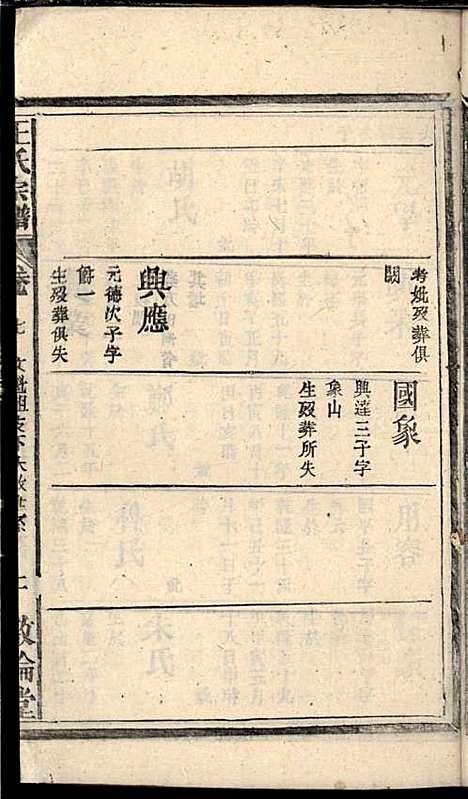 考妣歿葬俱
闕
國象
興達三子字
象山
生歿葬所失
興應
元德次子字
爵一
生歿葬俱失
王氏宗譜
卷
敦倫堂